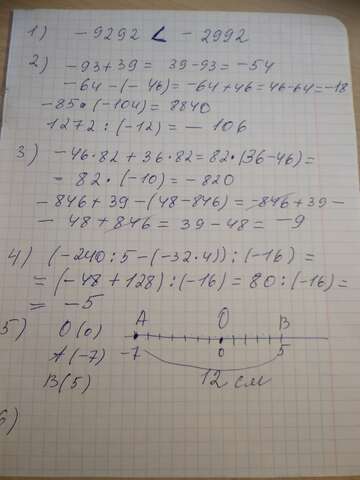 1) - 9292 < - 2992
2) - 93 + 39 = 39 - 93 = - 54
- 64 - (- 46) = - 64 + 46 = 46 - 64 = - 18
- 85 · (-104) = 8840
1272 : (-12) = - 106
3) - 46 · 82 + 36 · 82 = 82 · (36 - 46) =
= 82 · (-10) = - 820
- 846 + 39 - (48 - 846) = - 846 + 39 -
- 48 + 846 = 39 - 48 = - 9
4) (- 240 : 5 - (- 32 · 4)) : (-16) =
= (- 48 + 128) : (-16) = 80 : (-16) =
= - 5
5) O (0) A O B
A (-7) -7 0 5
B (5) 12 см
6)